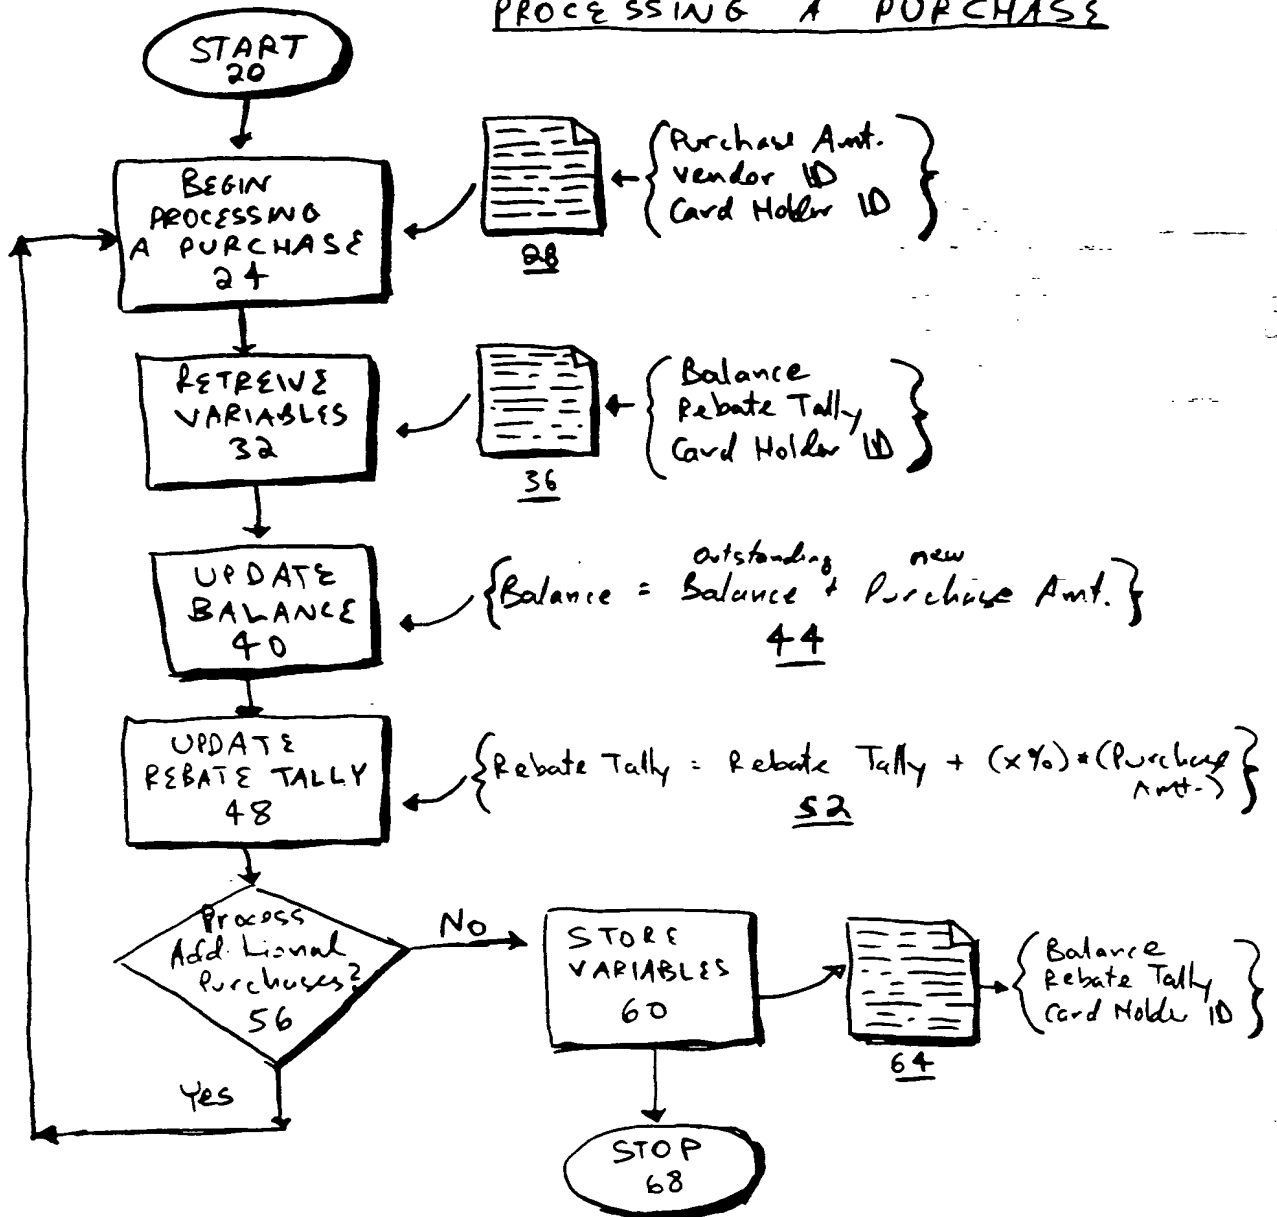 PROCESSING A PURCHASE
START
20
BEGIN
PROCESSING
A PURCHASE
24
Purchase Amt.
Vendor ID
Card Holder ID
28
RETREIVE
VARIABLES
32
Balance
Rebate Tally
Card Holder ID
36
UPDATE
BALANCE
40
outstanding new
Balance = Balance + Purchase Amt.
44
UPDATE
REBATE TALLY
48
Rebate Tally = Rebate Tally + (x%)*(Purchase
Amt.)
52
Process
Additional
Purchases?
56
No
Yes
STORE
VARIABLES
60
Balance
Rebate Tally
Card Holder ID
64
STOP
68